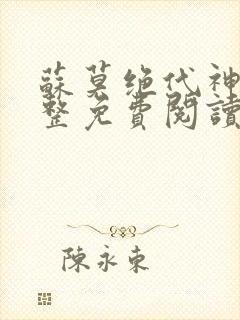 蘇莫绝代神
整免費閱讀
陳永東